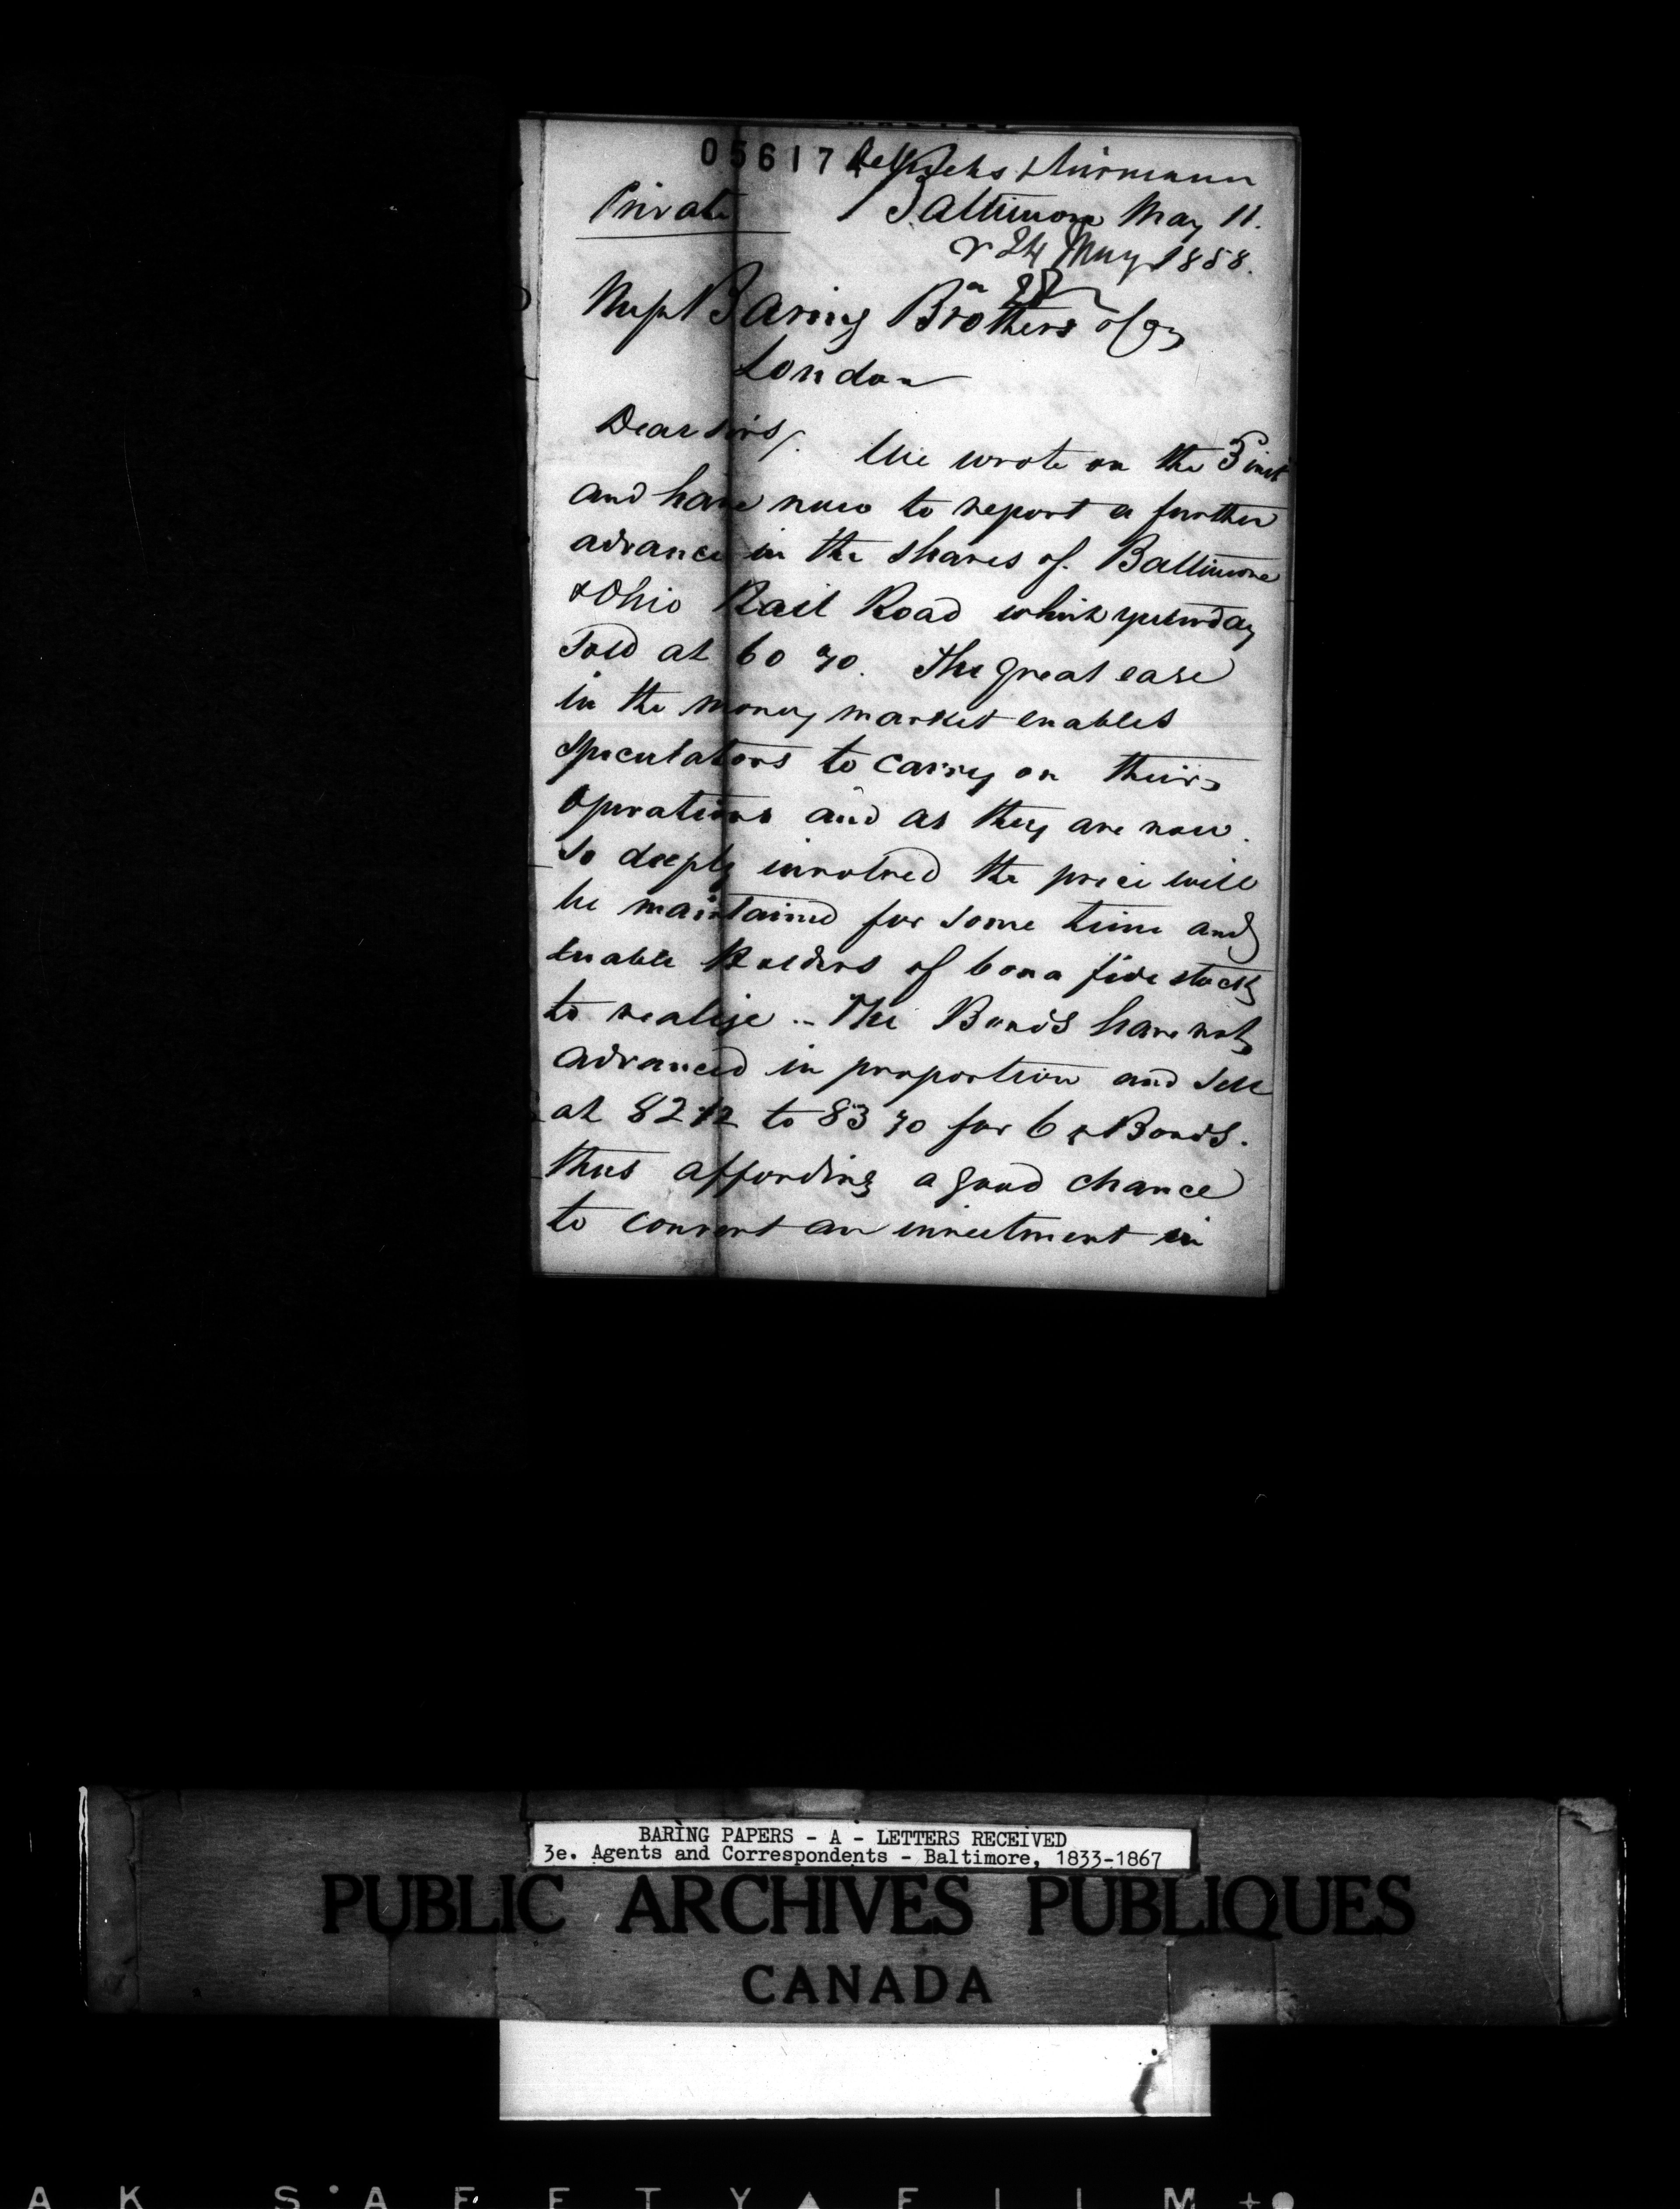 05617
Private
Baltimore May 11.
r 24 May 1858.
a 28
Messrs Baring Brothers & Co
London
Dear Sirs/. We wrote on the 3 inst
and have now to report a further
advance in the shares of Baltimore
& Ohio Rail Road which yesterday
sold at 60 %. The great ease
in the money market enables
speculators to carry on their
operations and as they are now
so deeply involved the price will
be maintained for some time and
enable Holders of bona fide stock
to realize .. The Bonds have not
advanced in proportion and sell
at 82 1/2 to 83 % for 6 % Bonds.
thus affording a good chance
to convert an investment in
BARING PAPERS - A - LETTERS RECEIVED
3e. Agents and Correspondents - Baltimore, 1833-1867
PUBLIC ARCHIVES PUBLIQUES
CANADA
A K SAFETY FILM